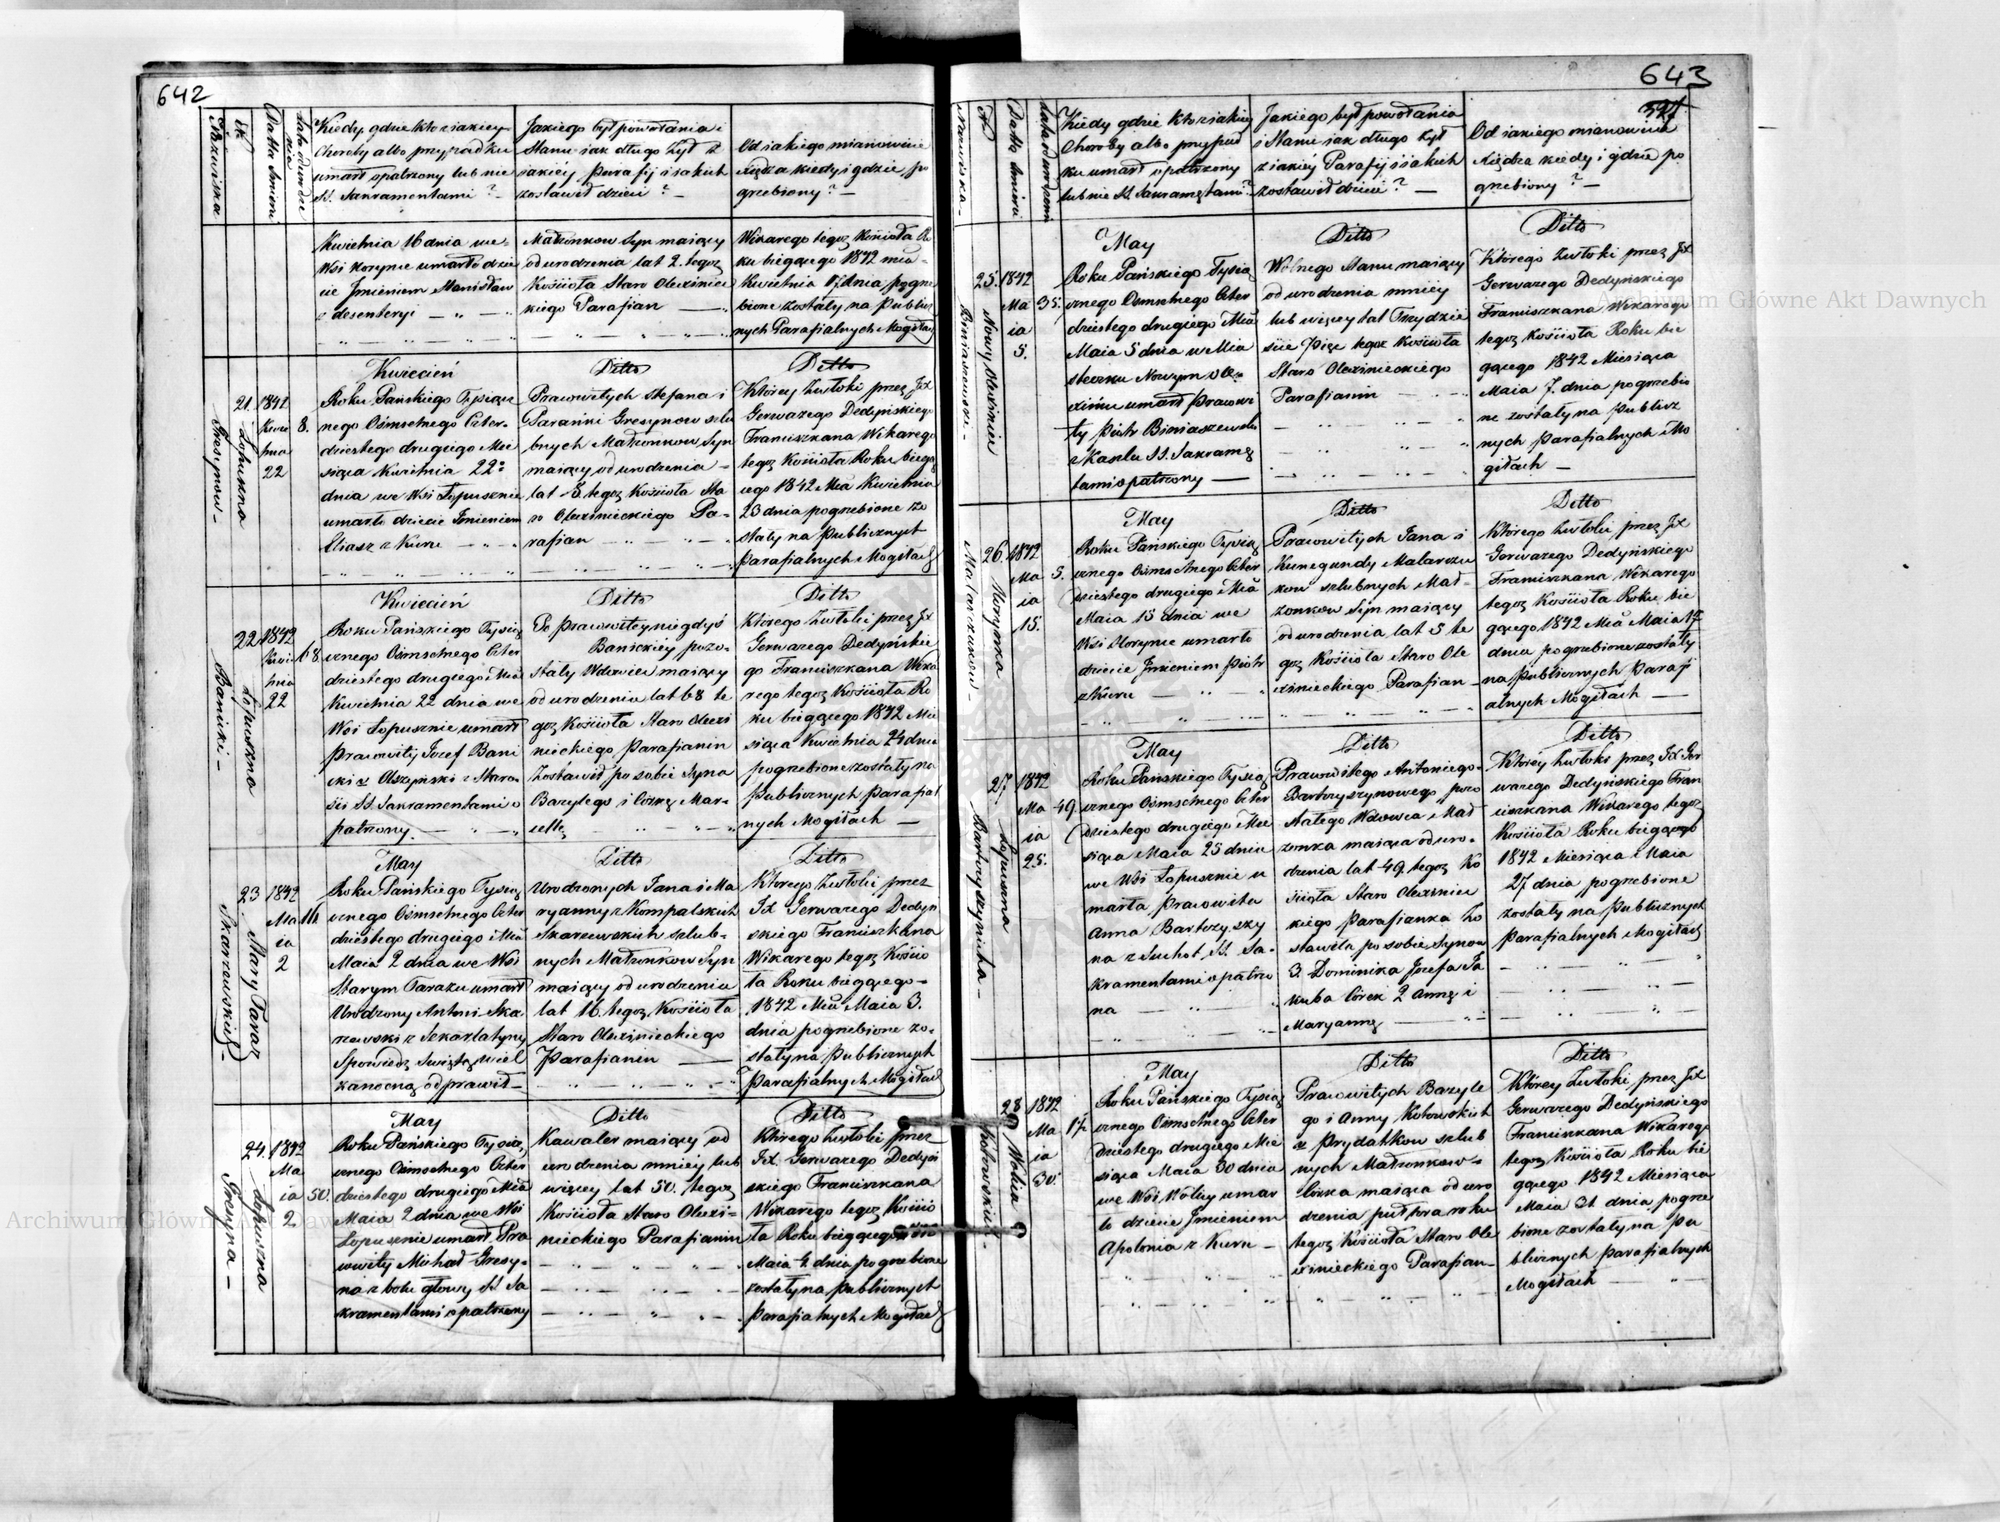 642
Nazwiska
№
Datta Smierci
Lata od urodze
nia
Kiedy gdzie kto z iakiey
Choroby albo przypadku
umarł opatrzony lub nie
SS. Sakramentami? —
Jakiego był powołania i
Stanu iak długo żył z
iakiéy Parafij i iakich
zostawił dzieci? —
Od iakiego mianowicie
Xiędza kiedy i gdzie po
grzebiony? —
Kwietnia 16 dnia we
Wsi Korynie umarło dzie
cie Jmieniem Stanisław
z desenteryi
Małżonkow Syn maiący
od urodzenia lat 2. tegoż
Kościoła Staro Olexiniec
kiego Parafian
Wikarego tegoż Kościoła Ro
ku bieżącego 1842 mia
Kwietnia 17 dnia pogrze
bione zostały na Publicz
nych Parafialnych Mogiłach
Gresynow
21.
Łopuszna
1842
Kwie
tnia
22
8.
Kwiecień
Roku Pańskiego Tysiącz
nego Ośmsetnego Czter
dziestego drugiego Mie
siąca Kwietnia 22º
dnia we Wsi Łopusznie
umarło dziecie Jmieniem
Eliasz z Kuru
Ditto
Prawowitych Stefana i
Paranki Gresynow szlu
bnych Małżonkow Syn
maiący od urodzenia
lat 8 tegoż Kościoła Sta
ro Olexinieckiego Pa
rafian
Ditto
Którey Zwłoki przez JX
Gerwazego Dedyńskiego
Franciszkana Wikarego
tegoż Kościoła Roku bieżą
cego 1842 Mca Kwietnia
23 dnia pogrzebione zo
stały na Publicznych
Parafialnych Mogiłach
Banicki
22
Łopuszna
1842
Kwie
tnia
22
68
Kwiecień
Roku Pańskiego Tysiącz
cznego Ośmsetnego Czter
dziestego drugiego Mca
Kwietnia 22 dnia we
Wsi Łopusznie umarł
Prawowity Jozef Bani
cki z Olszynski z Staro
ści SS. Sakramentami o
patrzony
Ditto
Po Prawowitey niegdyś
Banickiéy pozo
stały Wdowiec maiący
od urodzenia lat 68 te
goż Kościoła Staro Olexi
nieckiego Parafianin
Zostawił po sobie Syna
Bazylego i Córkę Mar
cellę
Ditto
Którego Zwłoki przez JX
Gerwazego Dedyńskie
go Franciszkana Wika
rego tegoż Kościoła Ro
ku bieżącego 1842 Mie
siąca Kwietnia 24 dnia
pogrzebione zostały na
Publicznych Parafial
nych Mogiłach
Skarzewski
23
Stary Taraż
1842
Ma
ia
2
16
May
Roku Pańskiego Tysią
cznego Ośmsetnego Czter
dziestego drugiego Mca
Maia 2 dnia we Wsi
Starym Tarażu umarł
Urodzony Antoni Ska
rzewski z Szkarlatyny
Spowiedź Swiętą Wiel
kanocną odprawił
Ditto
Urodzonych Jana i Ma
ryanny z Kompalskich
Skarzewskich szlub
nych Małżonkow Syn
maiący od urodzenia
lat 16. tegoż Kościoła
Staro Olexinieckiego
Parafianin
Ditto
Którego Zwłoki przez
JX Gerwazego Dedyn
skiego Franciszkana
Wikarego tegoż Kościo
ła Roku bieżącego
1842 Mca Maia 3.
dnia pogrzebione zo
stały na Publicznych
Parafialnych Mogiłach
Gresyna
24.
Łopuszna
1842
Ma
ia
2.
50.
May
Roku Pańskiego Tysią
cznego Ośmsetnego Czter
dziestego drugiego Mca
Maia 2 dnia we Wsi
Łopusznie umarł Pra
wowity Michał Gresy
na z bolu głowy SS Sa
kramentami opatrzony
Ditto
Kawaler maiący od
urodzenia mniey lub
więcey lat 50. tegoż
Kościoła Staro Olexi
nieckiego Parafianin
Ditto
Którego Zwłoki przez
JX. Gerwazego Dedyń
skiego Franciszkana
Wikarego tegoż Kościo
ła Roku bieżącego
Maia 4 dnia pogrzebione
zostały na Publicznych
Parafialnych Mogiłach
643
Nazwiska
№
Datta Smierci
Lata od urodzenia
Kiedy gdzie kto z iakiey
Choroby albo przypad
ku umarł opatrzony
lub nie SS. Sakramentami?
Jakiego był powołania
i Stanu iak długo żył
z iakiéy Parafij i iakich
zostawił dzieci? —
Od iakiego mianowicie
Xiędza kiedy i gdzie po
grzebiony? —
Biniaszewski
25.
Nowy Olexiniec
1842
Ma
ia
5.
35.
May
Roku Pańskiego Tysią
cznego Ośmsetnego Czter
dziestego drugiego Mca
Maia 5 dnia w Mia
steczku Nowym Ole
xińcu umarł Prawowi
ty Piotr Biniaszewski
z Kaszlu SS. Sakramę
tami opatrzony —
Ditto
Wolnego Stanu maiący
od urodzenia mniéy
lub więcey lat Trzydzie
ście Pięć tegoż Kościoła
Staro Olexinieckiego
Parafianin
Ditto
Którego Zwłoki przez JX
Gerwazego Dedyńskiego
Franciszkana Wikarego
tegoż Kościoła Roku bie
żącego 1842 Miesiąca
Maia 7. dnia pogrzebio
ne zostały na Publicz
nych Parafialnych Mo
giłach —
Malarczukow
26.
Korynna
1842
Ma
ia
15.
5.
May
Roku Pańskiego Tysią
cznego Ośmsetnego Czter
dziestego drugiego Mca
Maia 15 dnia we
Wsi Korynie umarło
dziecie Jmieniem Piotr
z Kuru
Ditto
Prawowitych Jana i
Kunegundy Malarczu
kow szlubnych Mał
żonkow Syn maiący
od urodzenia lat 5 te
goż Kościoła Staro Ole
xinieckiego Parafian
Ditto
Którego Zwłoki przez JX
Gerwazego Dedyńskiego
Franciszkana Wikarego
tegoż Kościoła Roku bie
żącego 1842 Mca Maia 17
dnia pogrzebione zostały
na Publicznych Parafi
alnych Mogiłach
Bartuszynska
27
Łopuszna
1842
Ma
ia
25.
49
May
Roku Pańskiego Tysią
cznego Ośmsetnego Czter
dziestego drugiego Mie
siąca Maia 25 dnia
we Wsi Łopusznie u
marła Prawowita
Anna Bartoszysky
na z Suchot SS. Sa
kramentami opatrzo
na
Ditto
Prawowitego Antoniego
Bartoszyszynowego pozo
stałego Wdowca Mał
żonka maiąca od uro
dzenia lat 49 tegoż Ko
ścioła Staro Olexiniec
kiego Parafianka Zo
stawiła po sobie Synow
3. Dominika Jozefa Ja
kuba Córek 2 Annę i
Maryannę
Ditto
Którey Zwłoki przez JX Ger
wazego Dedyńskiego Fran
ciszkana Wikarego tegoż
Kościoła Roku bieżącego
1842 Miesiąca Maia
27 dnia pogrzebione
zostały na Publicznych
Parafialnych Mogiłach
Kotowskich
28
Wolica
1842
Ma
ia
30.
1½
May
Roku Pańskiego Tysią
cznego Ośmsetnego Czter
dziestego drugiego Mie
siąca Maia 30 dnia
we Wsi Wolicy umar
ło dziecie Jmieniem
Apolonia z Kuru
Ditto
Prawowitych Bazyle
go i Anny Kotowskich
z Prydatkow szlub
nych Małżonkow
Córka maiąca od uro
dzenia pułtora roku
tegoż Kościoła Staro Ole
xinieckiego Parafian
Ditto
Którey Zwłoki przez JX
Gerwazego Dedyńskiego
Franciszkana Wikarego
tegoż Kościoła Roku bie
żącego 1842 Miesiąca
Maia 31 dnia pogrze
bione zostały na Pu
blicznych Parafialnych
Mogiłach
Archiwum Główne Akt Dawnych
Archiwum Główne Akt Dawnych